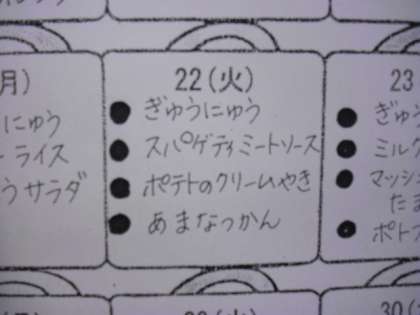 月)
にゅう
ライス
うサラダ
22(火)
ぎゅうにゅう
スパゲティミートソース
ポテトのクリームやき
あまなつかん
23
ぎゅう
ミルク
マッシュ
たま
ポトフ